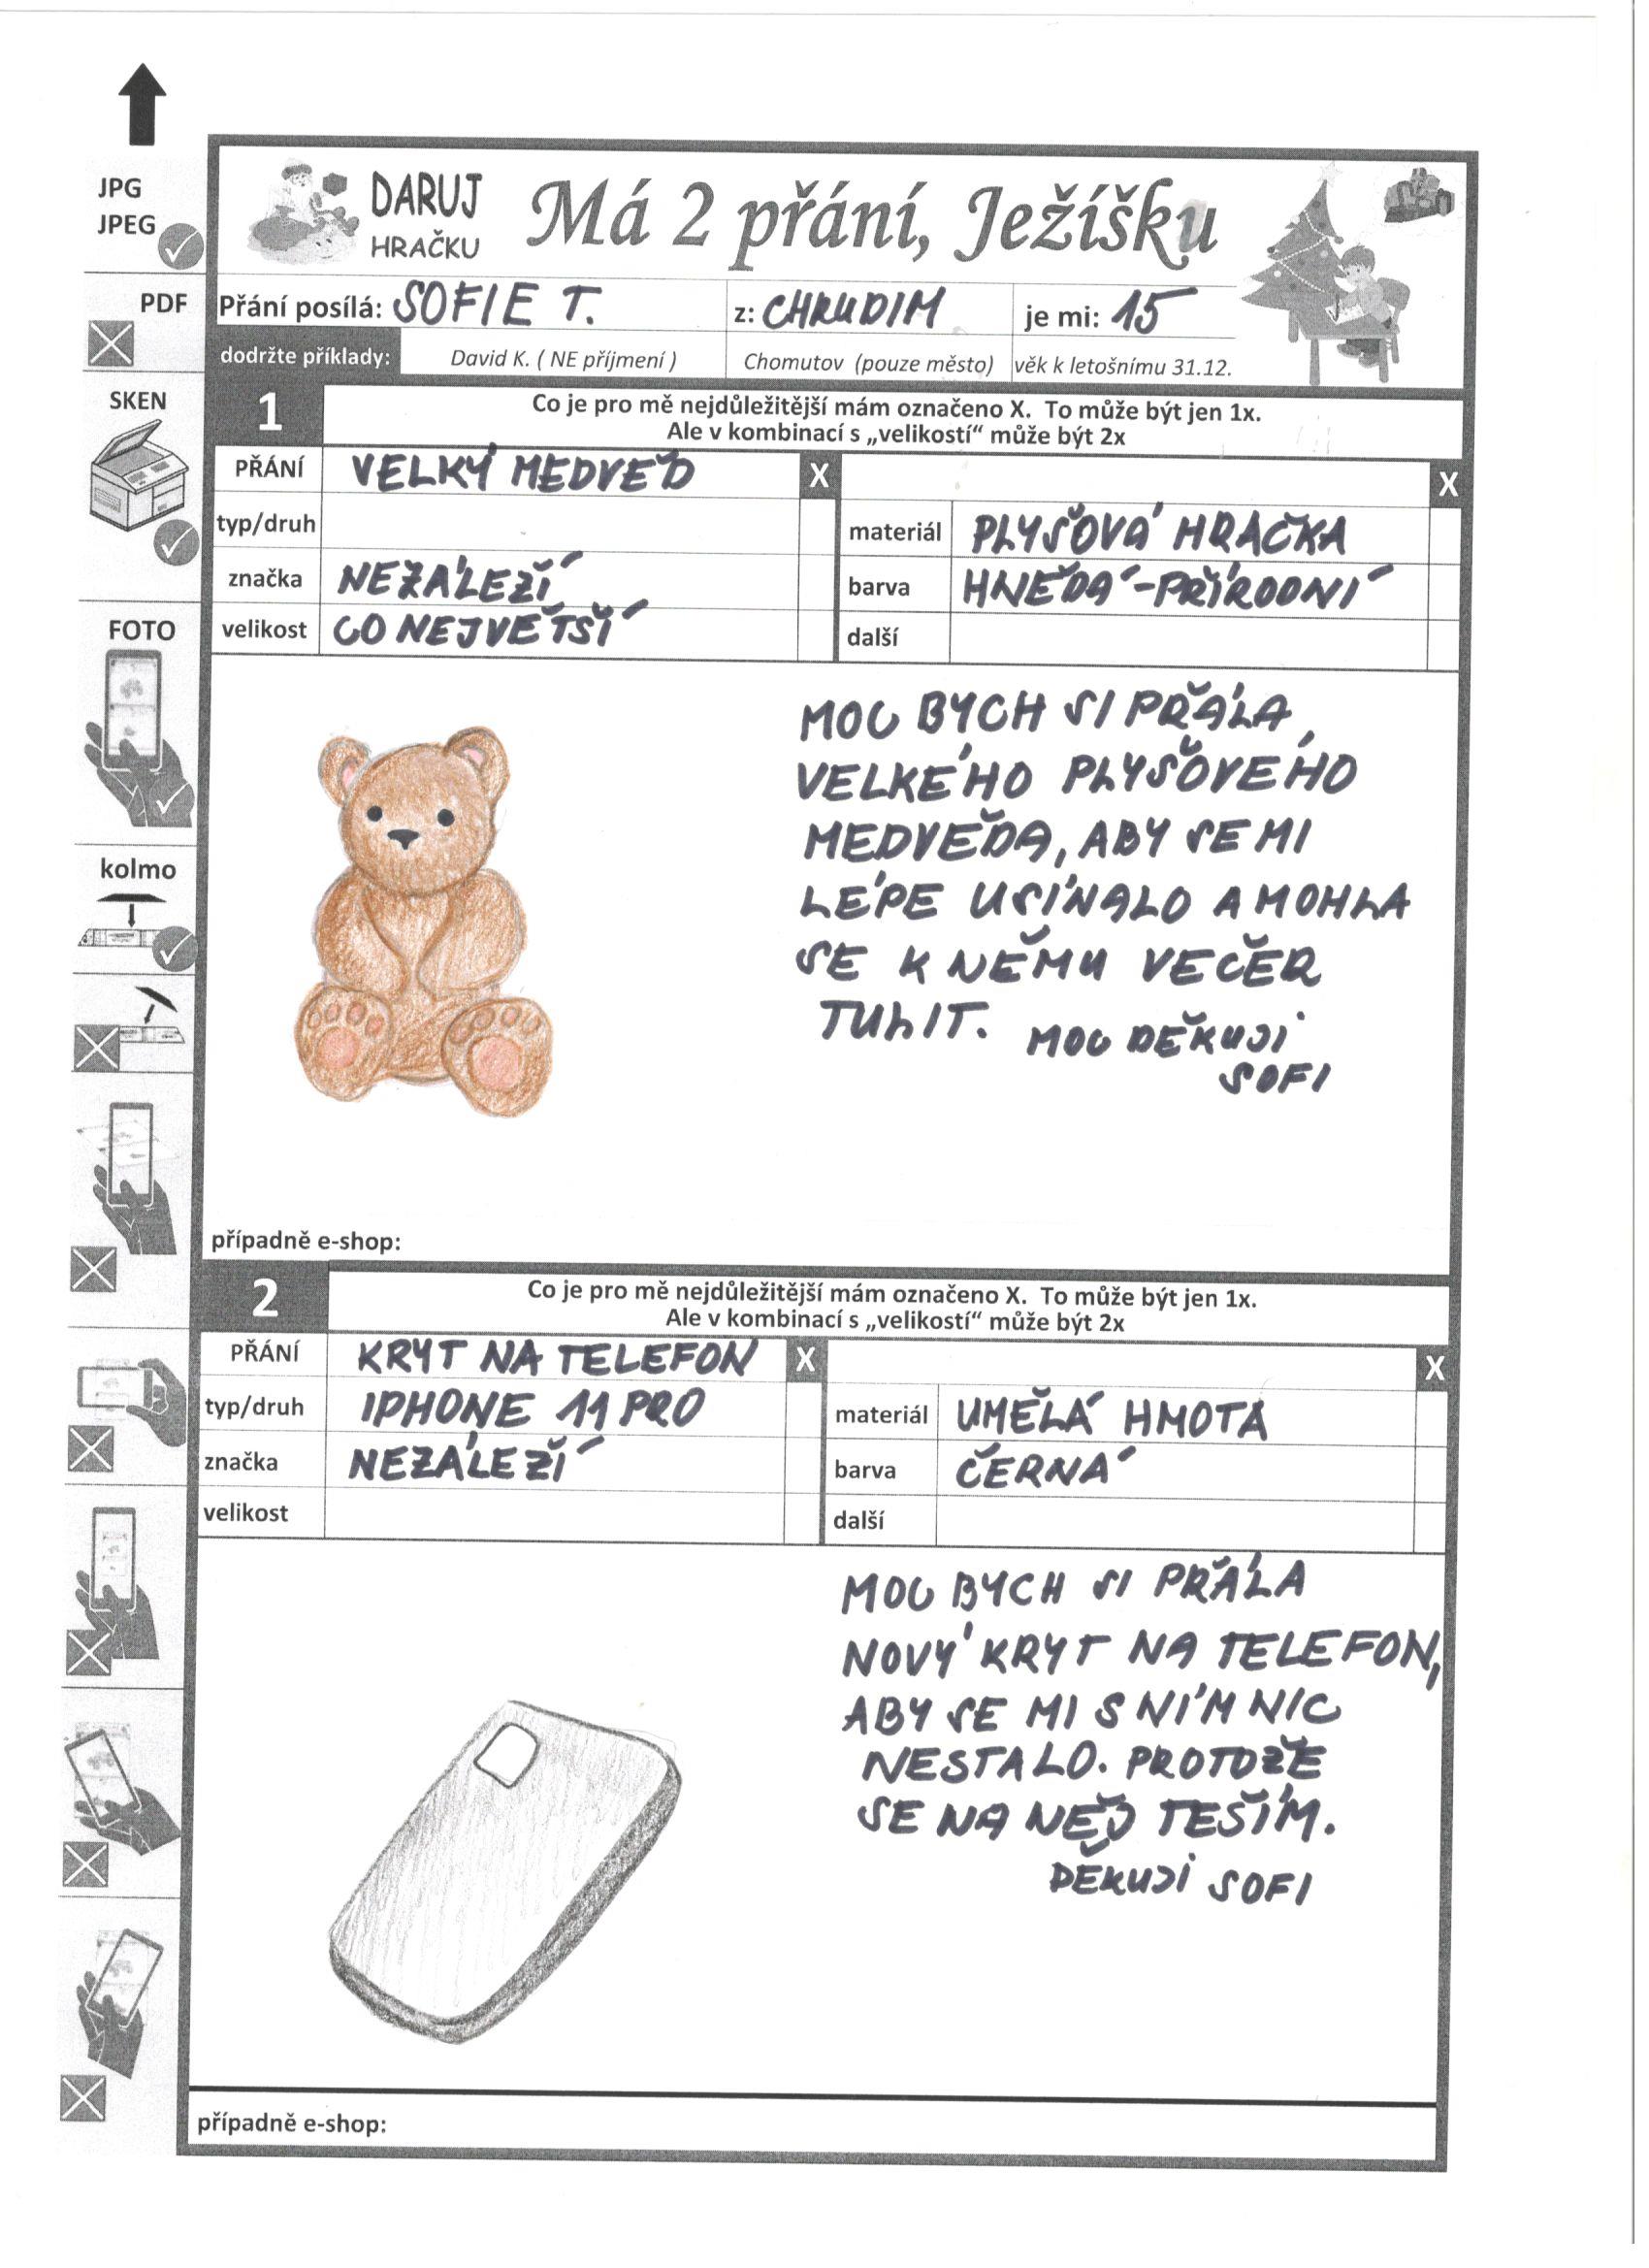 JPG
JPEG
PDF
SKEN
FOTO
kolmo
DARUJ
HRAČKU
Má 2 přání, Ježíšku
Přání posílá: SOFIE T. z: CHRUDIM je mi: 15
dodržte příklady: David K. ( NE příjmení ) Chomutov (pouze město) věk k letošnímu 31.12.
1
Co je pro mě nejdůležitější mám označeno X. To může být jen 1x.
Ale v kombinací s „velikostí“ může být 2x
PŘÁNÍ VELKÝ MEDVEĎ X X
typ/druh materiál PLYŠOVÁ HRAČKA
značka NEZÁLEŽÍ barva HNĚDÁ-PŘÍRODNÍ
velikost CO NEJVĚTŠÍ další
MOC BYCH SI PŘÁLA
VELKÉHO PLYŠOVÉHO
MEDVEĎA, ABY SE MI
LÉPE USÍNALO A MOHLA
SE K NĚMU VEČER
TULIT. MOC DĚKUJI
SOFI
případně e-shop:
2
Co je pro mě nejdůležitější mám označeno X. To může být jen 1x.
Ale v kombinací s „velikostí“ může být 2x
PŘÁNÍ KRYT NA TELEFON X X
typ/druh IPHONE 11 PRO materiál UMĚLÁ HMOTA
značka NEZÁLEŽÍ barva ČERNÁ
velikost další
MOC BYCH SI PŘÁLA
NOVÝ KRYT NA TELEFON,
ABY SE MI S NÍM NIC
NESTALO. PROTOŽE
SE NA NĚJ TEŠÍM.
DĚKUJI SOFI
případně e-shop: